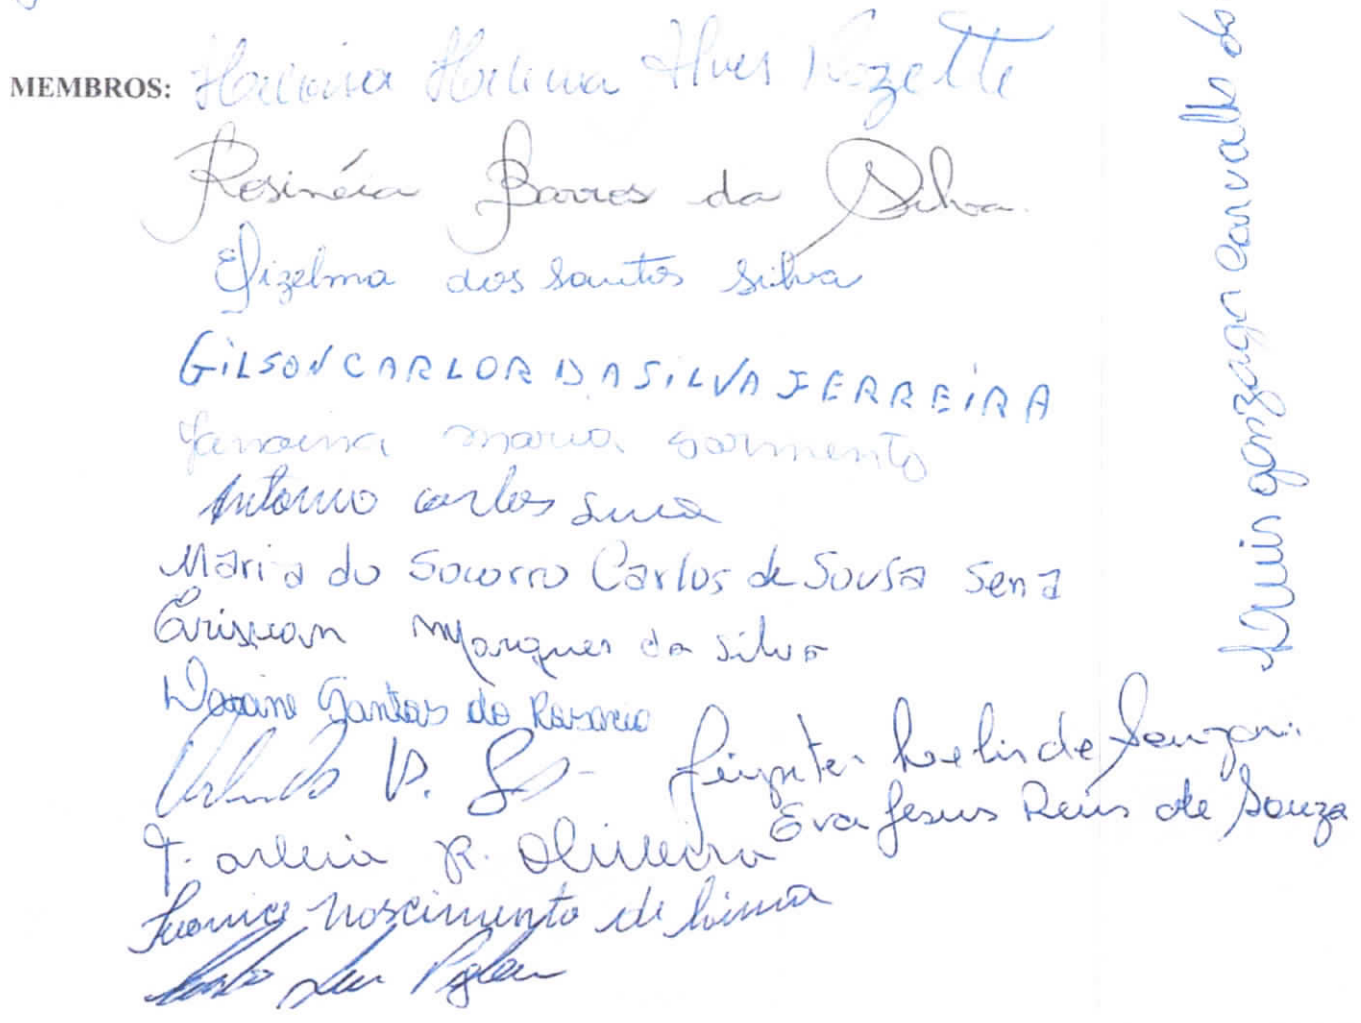 MEMBROS: Heloisa Helena Alves Rozette
Rosinéia Barros da Silva
Efizelma dos Santos Silva
GILSON CARLOR DA SILVA FERREIRA
Janaina maria sarmento
Antonio carlos
Maria do Socorro Carlos de Sousa Sena
Marques da Silva
Santos do Rosario
de Souza
Eva Jesus Reis de Souza
R. Oliveira
Nascimento de Lima
Luis gonzaga Carvalho do